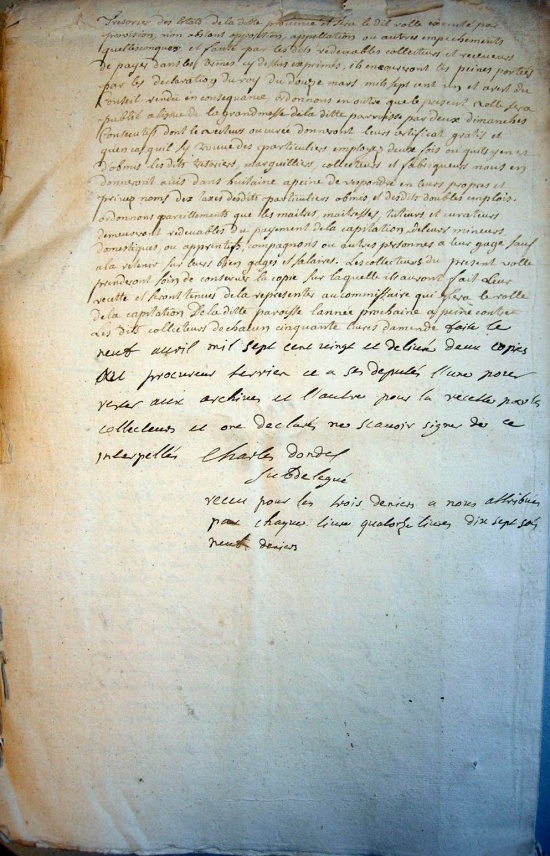 Tresorier des Etats de la ditte province et sera le dit rolle executé par
provision, non obstant opposition, appellation ou autres empechements
quelleconques et faute par les dits redevables collecteurs et receveurs
De payer dans les termes cy dessus exprimés, ils encourreront les peines portées
par les declaration du roy du douze mars mil sept cent un et arest du
Conseil rendu en consequance, ordonnons en outre que le present rolle sera
publié a l'issue de la grandmesse de la ditte parroisse par deux dimanches
Consecutifs dont le recteur ou curé donneront leurs certificat gratis et
qu'en cas quil sy trouve des particuliers employez deux fois ou quils y en est
d'obmis les dits tresoriers, marguilliers, collecteurs et fabiqueurs nous en
donneront avis dans huitaine a peine de respondre en leurs propres et
privez noms des taxes desdits particuliers obmis et desdits doubles emplois
ordonnons pareillements que les maitres, maitresses, tuteurs et curateurs
demeureront redevables du payement de la capitation de leurs mineurs
domestiques, ou apprentifs compagnons ou autres personnes a leur gage sauf
a la retenir sur leurs gages et salaires. Les collecteurs du present rolle
prenderont soin de conserver la copie sur laquelle ils auront fait Leur
recette et seront tenues de la representer au commissaire qui fera le rolle
de la capitation De la ditte paroisse lannée prochaine a peine contre
Les dits collecteurs de chacun cinquante livres damende faite le
neuf avril mil sept cent vingt et delivré deux copies
au procureur terrien ce a ses deputés l'une pour
rester aux archives et l'autre pour la recette par les
collecteurs et ont declarés ne scavoir signer de ce
interpellés Charles Dondel
Subdelegué
receu pour les trois deniers a nous attribues
par chaque livre quatorze livres dix sept sols
neuf deniers